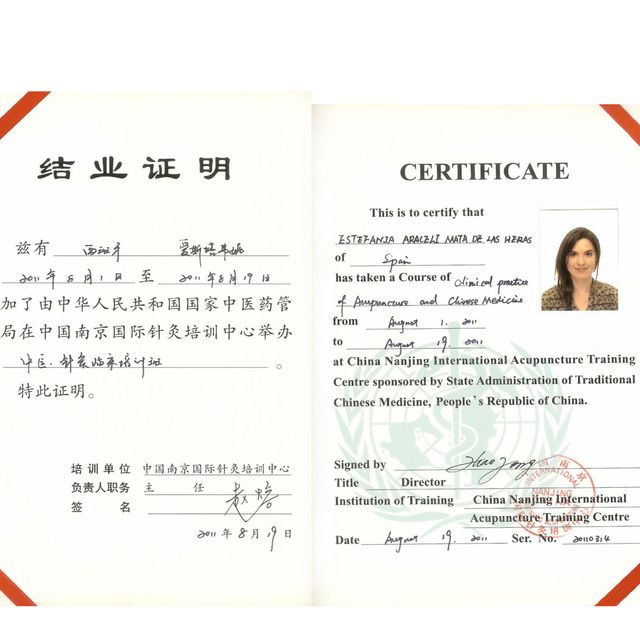 结业证明
兹有 西班牙 爱斯塔弗妮
2011年8月1日 至 2011年8月19日
加了由中华人民共和国国家中医药管
局在中国南京国际针灸培训中心举办
中医、针灸临床培训班 。
特此证明。
培训单位 中国南京国际针灸培训中心
负责人职务 主 任
签 名
2011年8月19日
CERTIFICATE
This is to certify that
ESTEFANJA ARACELI MATA DE LAS HERAS
of Spain
has taken a Course of Clinical practice
of Acupuncture and Chinese Medicine
from August 1. 2011
to August 19. 2011
at China Nanjing International Acupuncture Training
Centre sponsored by State Administration of Traditional
Chinese Medicine, People's Republic of China.
Signed by
Title Director
Institution of Training China Nanjing International
Acupuncture Training Centre
Date August 19. 2011 Ser. No. 20110314
INTERNATIONAL
NANJING